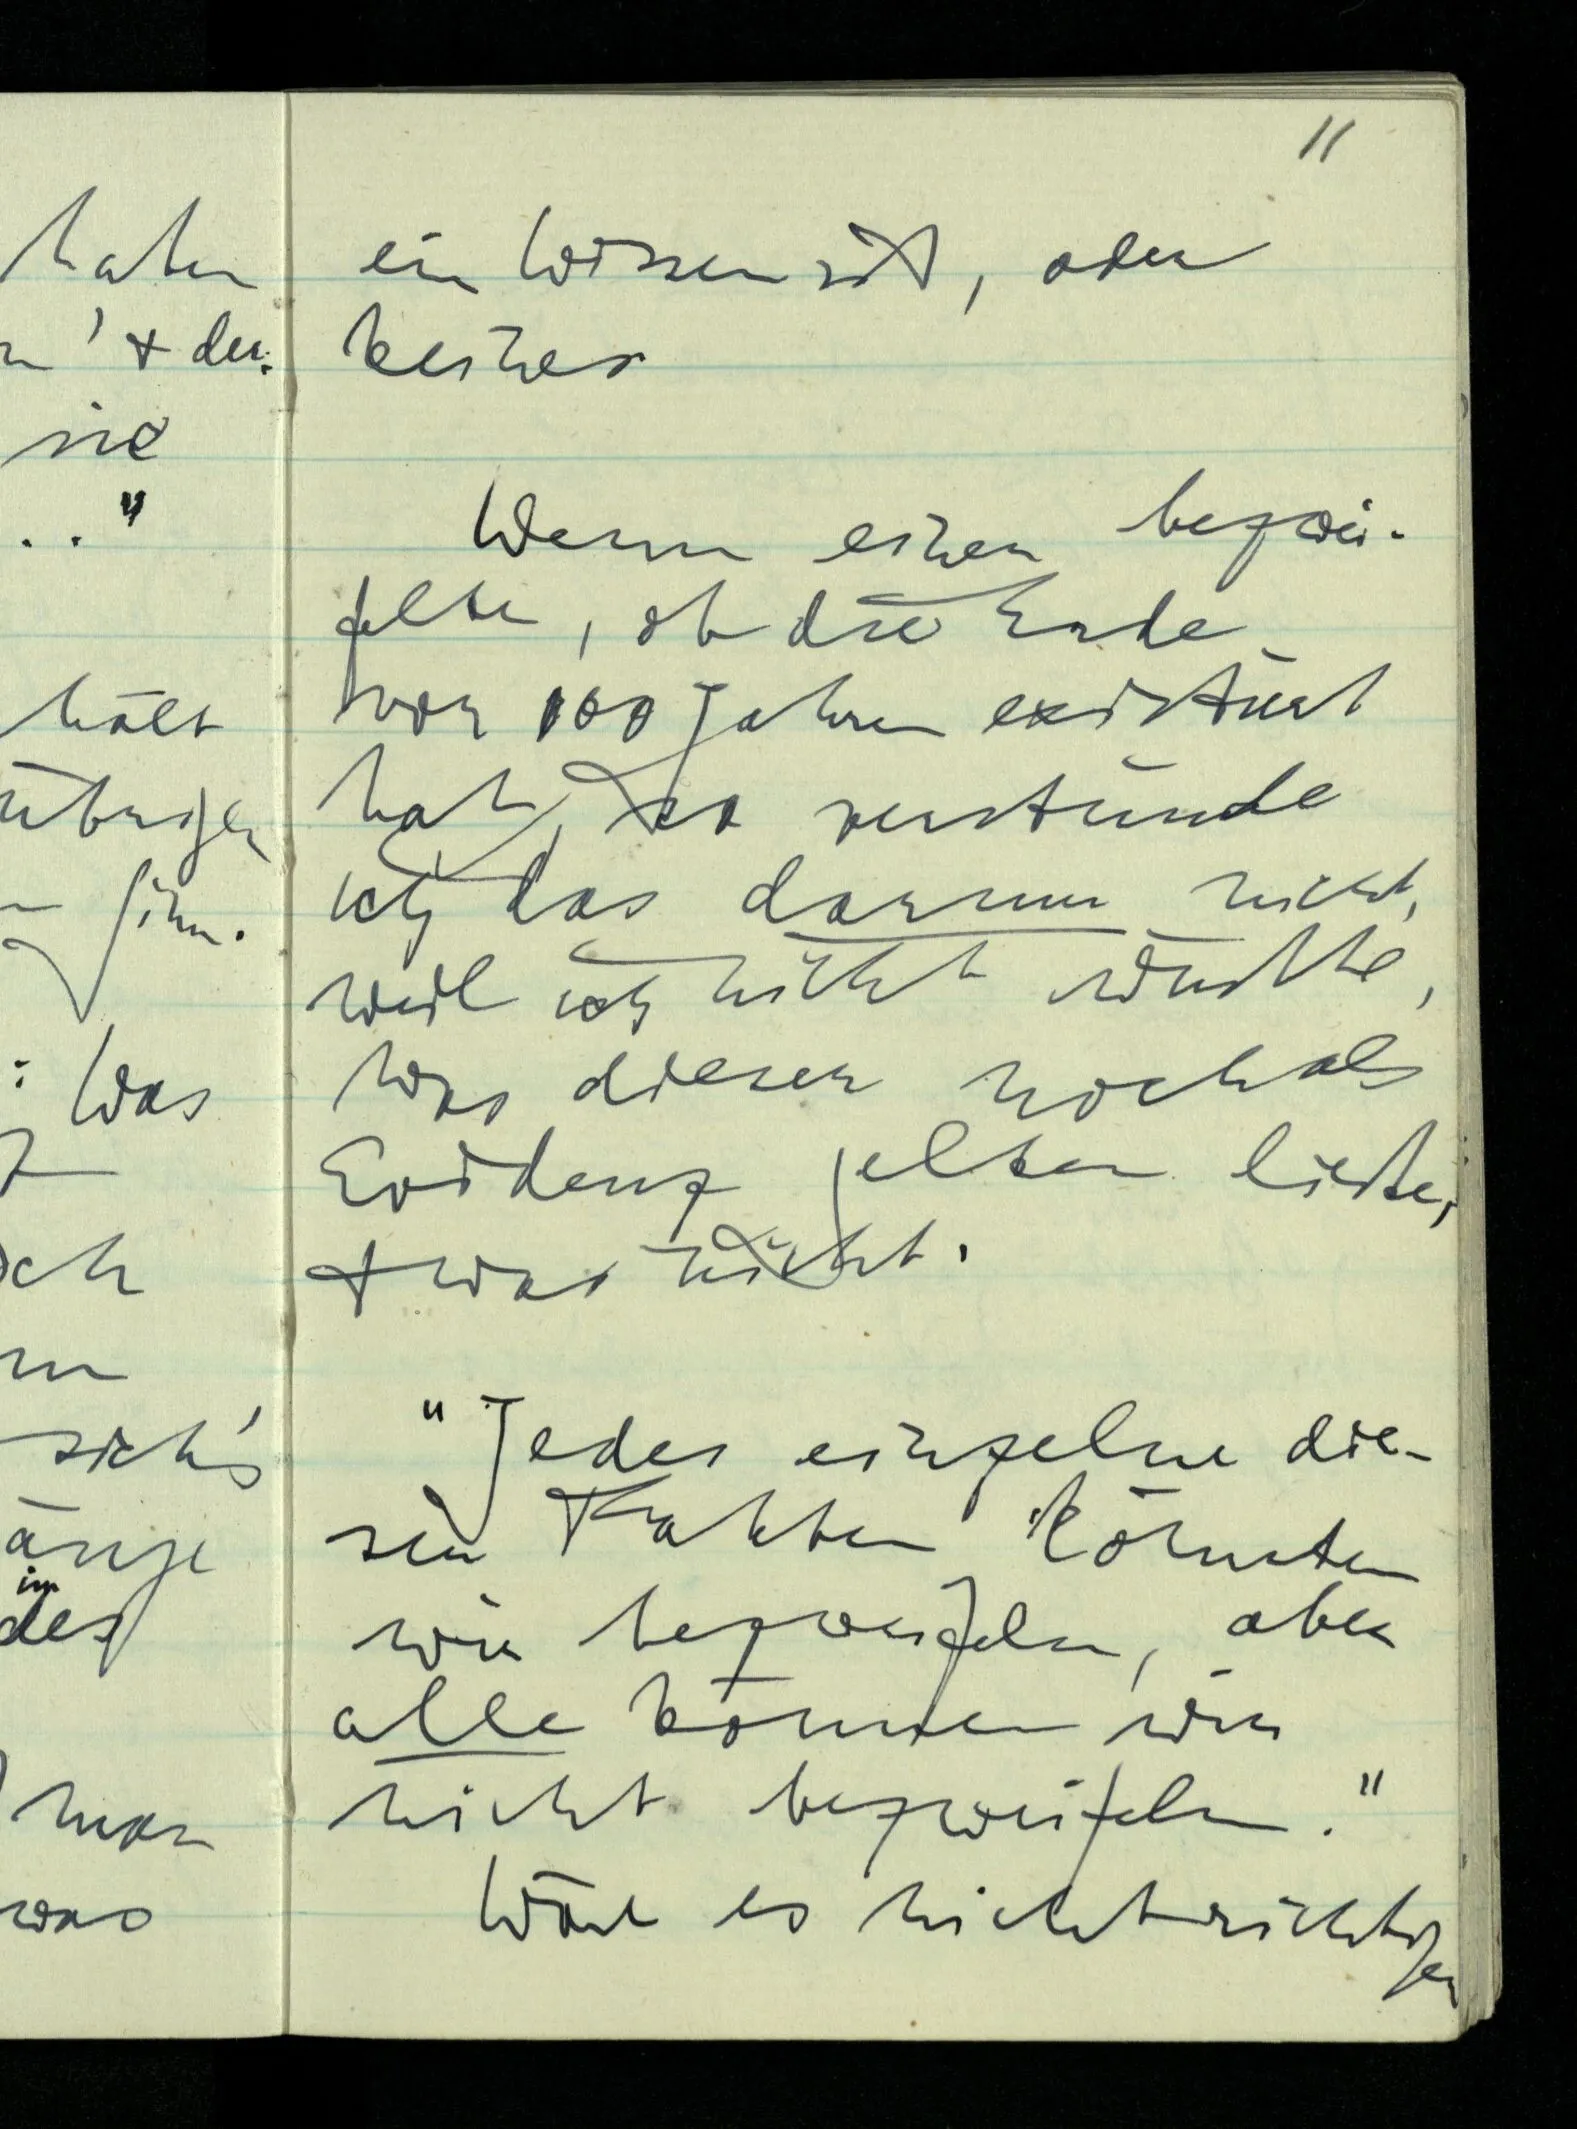 haben
+ der
sie
.."
hält
übrigen
: Was
sich's
änge
man
was
11
ein Wissen ist, oder
keines
Wenn einer bezwei-
felte, ob die Erde
vor 100 Jahren existiert
hat, so verstünde
ich das darum nicht,
weil ich nicht wüßte,
was dieser noch als
Evidenz gelten ließe,
+ was nicht.
"Jedes einzelne die-
ser Fakten könnten
wir bezweifeln, aber
alle können wir
nicht bezweifeln."
Wäre es nicht richtiger